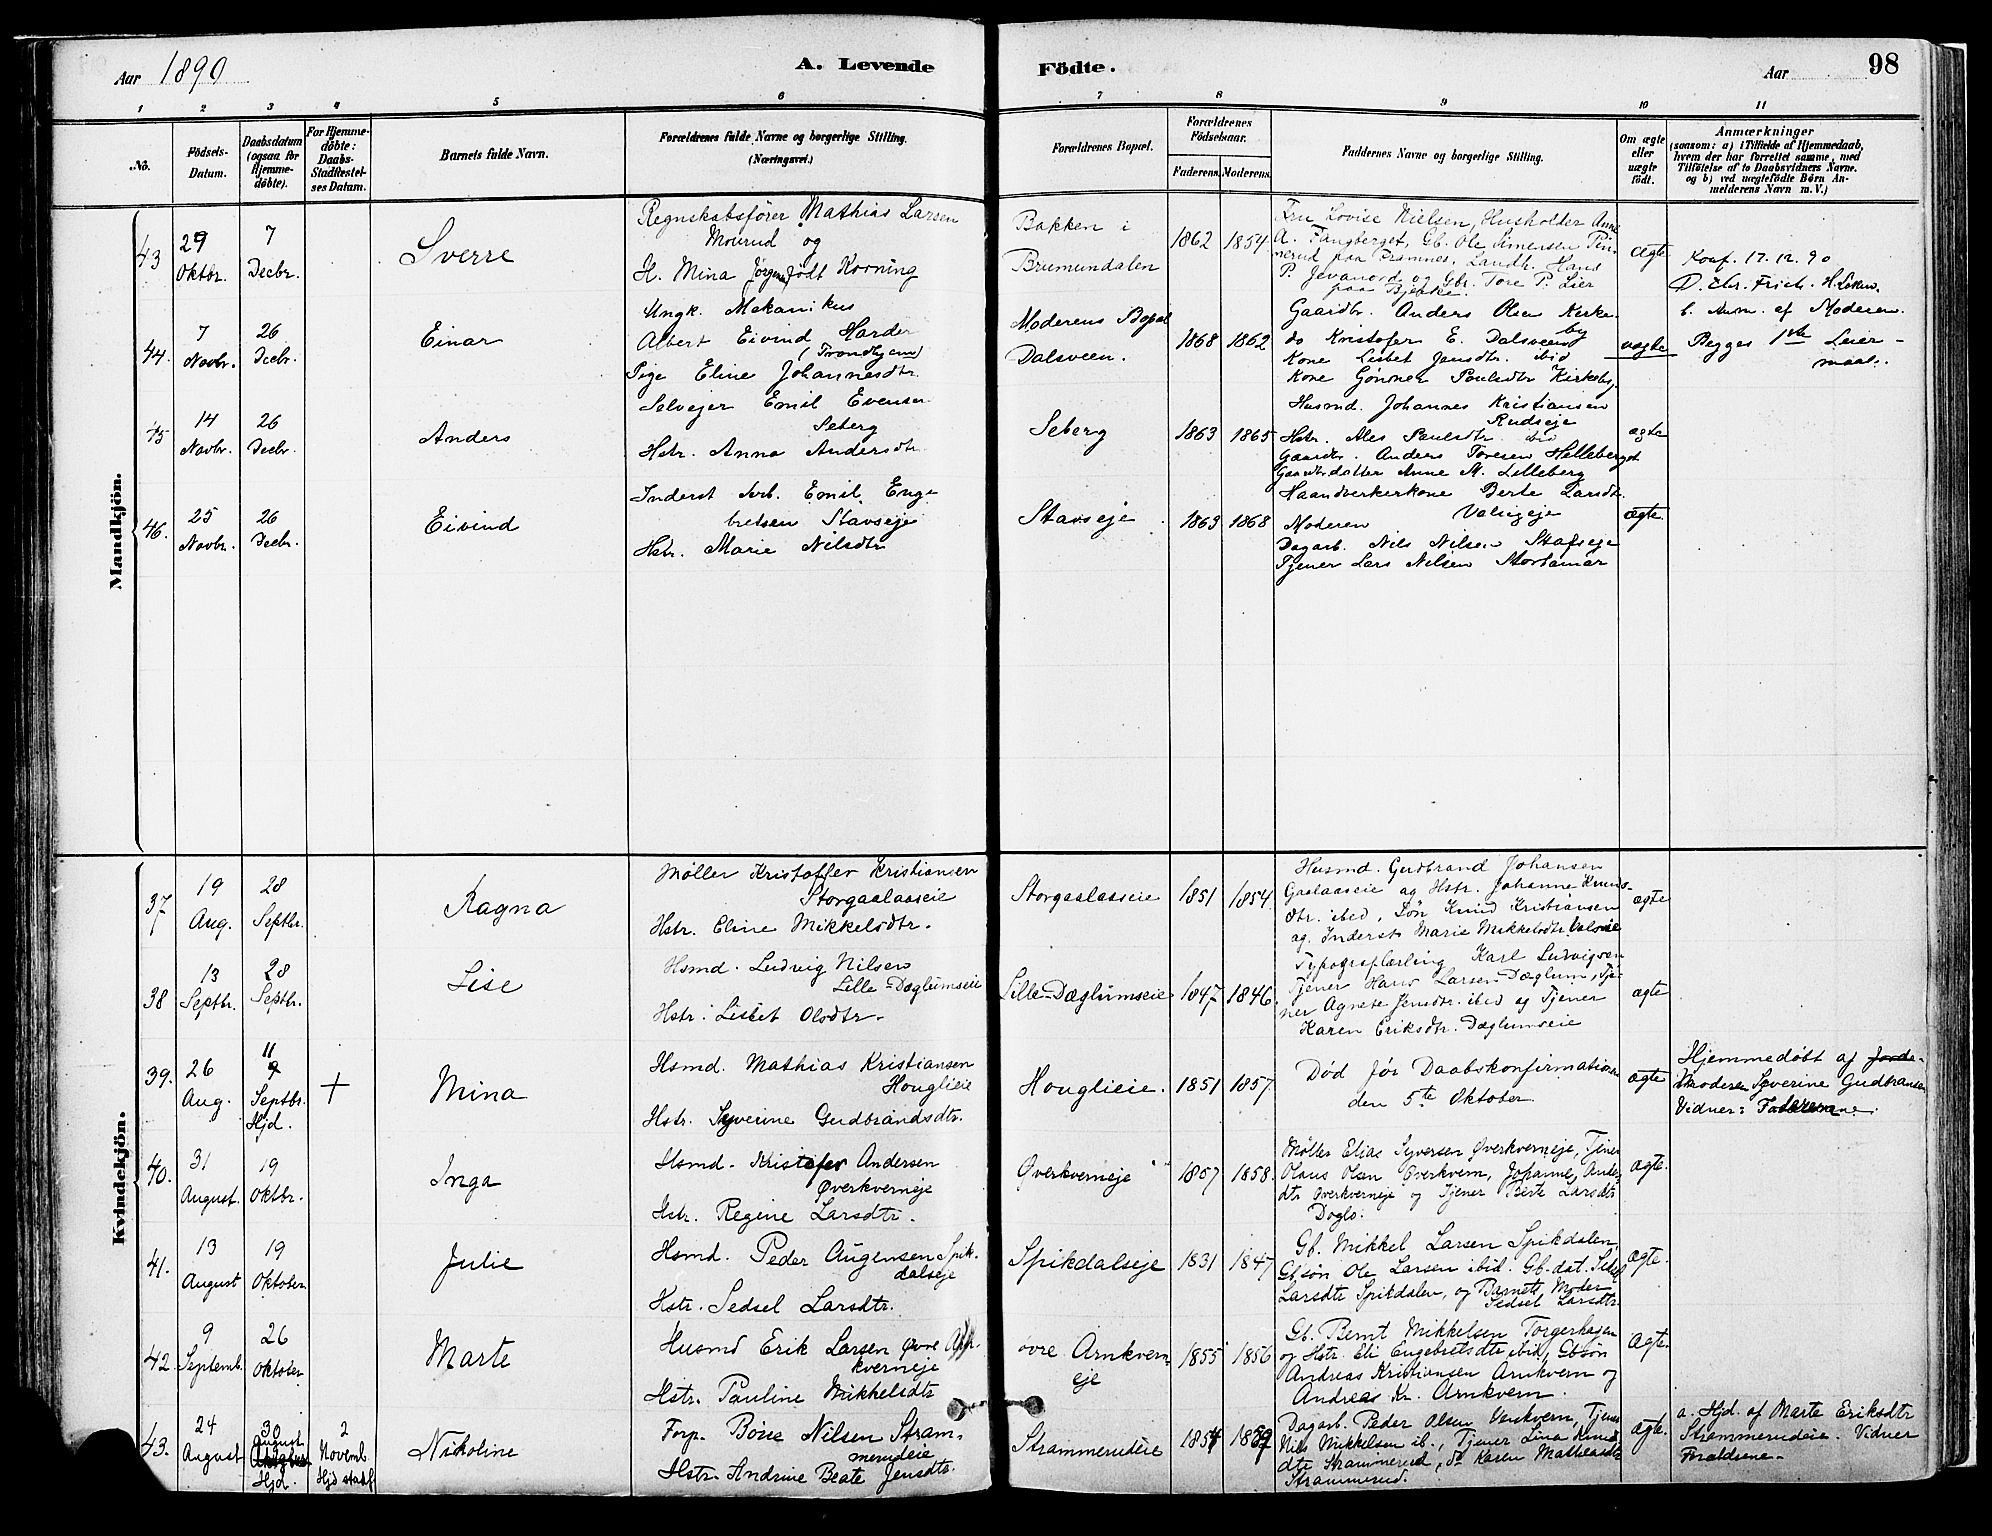 Aar 1890
A. Levende
Födte.
Aar
98
1 2 3 4 5 6 7 8 9 10 11
No.
Födsels-Datum.
Daabsdatum (ogsaa for Hjemmedöbte).
For Hjemmedöbte: Daabs-Stadfæstelses Datum.
Barnets fulde Navn.
Forældrenes fulde Navne og borgerlige Stilling.
(Næringsvei.)
Forældrenes Bopæl.
Forældrenes Födselsaar.
Faderens.
Moderens.
Faddernes Navne og borgerlige Stilling.
Om ægte eller uægte födt.
Anmærkninger
(saasom: a) i Tilfælde af Hjemmedaab, hvem der har forrettet samme, med Tilföielse af to Daabsvidners Navne. og b) ved uægtefödte Börn Anmelderens Navn m. V.)
Mandkjön.
43
29 Oktbr.
7 Decbr.
Sverre
Regnskabsfører Mathias Larsen
Mourud og
H. Mina Jørgine født Korning
Bakken i
Brumundalen
1862
1854
Fru Lovise Nielsen, Husholder Anne
A. Fangberget, Gb. Ole Simensen
P. Jevanord og Gbr. Tore P. Lier
ægte
Konf. 17.12.90
44.
7 Novbr.
26 Decbr.
Einar
Ungk. Mekanikus
Albert Eivind Harder
(Trondhjem)
Pige Eline Johannesdtr.
Moderens Bopæl
Dalsveen.
1868
1862
Gaardbr. Anders Olsen Kirke
by
do Kristofer E. Dalsveen
Kone Lisbet Jensdtr. ibid
Kone Gønner Paulsdtr Kirkeby.
uægte
b. Anm. af Moderen.
Begges 1ste Leier-
maal.
45
14 Novbr.
26 Decbr.
Anders
Selvejer Emil Evensen
Seberg
Hstr. Anna Andersdtr.
Seberg
1863
1865
Husmd. Johannes Kristiansen
Rudseje
Hstr. Ales Paulsdtr. ibid
Gaardbr. Anders Toresen Helleberget
Gaardbrdatter Anne M. Lilleberg
ægte
46.
25 Novbr.
26 Decbr.
Eivind
Inderst Arb. Emil Enge
bretsen Stavseje
Hstr. Marie Nilsdtr
Stavseje
1863
1868
Haandverkerkone Berte Larsdtr.
Moderen
Dagarb. Nils Nilsen Stafseje
Tjener Lars Nilsen Storhamar
ægte.
Kvindekjön.
37
19 Aug.
28 Septbr.
Ragna
Møller Kristoffer Kristiansen
Storgaalaaseie
Hstr. Eline Mikkelsdtr.
Storgaalaaseie
1851
1854
Husmd. Gudbrand Johansen
Gaalaaseie og Hstr. Johanne Knuds-
dtr. ibid, Søn Knud Kristiansen
og Inderst Marie Mikkelsdtr
ægte
38
13 Septbr.
28 Septbr.
Lise
Hsmd. Ludvig Nilsen
Lille-Dæglumseie
Hstr. Lisbet Olsdtr.
Lille-Dæglumseie
1847
1846
Typograflærling Karl Ludvigsen
Tjener Hans Larsen Dæglum, Tje-
ner Agnete Jensdtr. ibid og Tjener
Karen Eriksdtr. Dæglumseie
ægte
39.
26 Aug.
11 Septbr. Hjd.
+
Mina
Hsmd. Mathias Kristiansen
Houglieie
Hstr. Syverine Gudbrandsdtr.
Houglieie.
1851
1857
Død før Daabskonfirmationen
den 5te Oktober
ægte
Hjemmedøbt af Jorde-
Moderen Syverine Gudbransen
Vidner:
40.
31 August.
19 Oktbr.
Inga
Hsmd. Kristofer Andersen
Øverkverneje
Hstr. Regine Larsdtr.
Øverkverneje
1857
1858.
Møller Elias Syversen Øverkverneje, Tjener
Olaus Olsen Øverkvern, Johanne Anders
dtr Øverkverneje og Tjener Berte Larsdtr
Doglo.
ægte.
41.
13 August
19 Oktober
Julie
Hsmd. Peder Augensen Spik-
dalseje
Hstr. Sedsel Larsdtr.
Spikdalseje
1831
1847
Gb. Mikkel Larsen Spikdalen,
Gbsøn Ole Larsen ibid. Gb-dat. Sedsel
Larsdtr Spikdalen, og Barnets Moder
Sedsel Larsdtr
ægte.
42.
9 Septemb.
26 Oktober
Marte
Husmd Erik Larsen øvre Arn-
kverneje
Hstr. Pauline Mikkelsdtr
øvre Arnkvern
eje
1855
1856
Gb. Bernt Mikkelsen Torgerhagen
og Hstr. Eli Engebretsdtr ibid, Gbsøn
Andreas Kristiansen Arnkvern og
Andreas Kr. Arnkvern.
ægte.
43.
24 August
30 August Hjd.
2 Novemb. Hjd stadf
Nikoline
Forp. Børre Nilsen Stram-
merudeie
Hstr. Andrine Beate Jensdtr.
Strammerudeie
1854
1859
Dagarb. Peder Olsen Venkvern, Tjener
Nils Mikkelsen ib., Tjener Lina Knuds
dtr Strammerud, do Karen Matheasdtr
Strammerud.
ægte.
a. Hjd. af Marte Eriksdtr
Strammerudeie. Vidner
Forældrene.